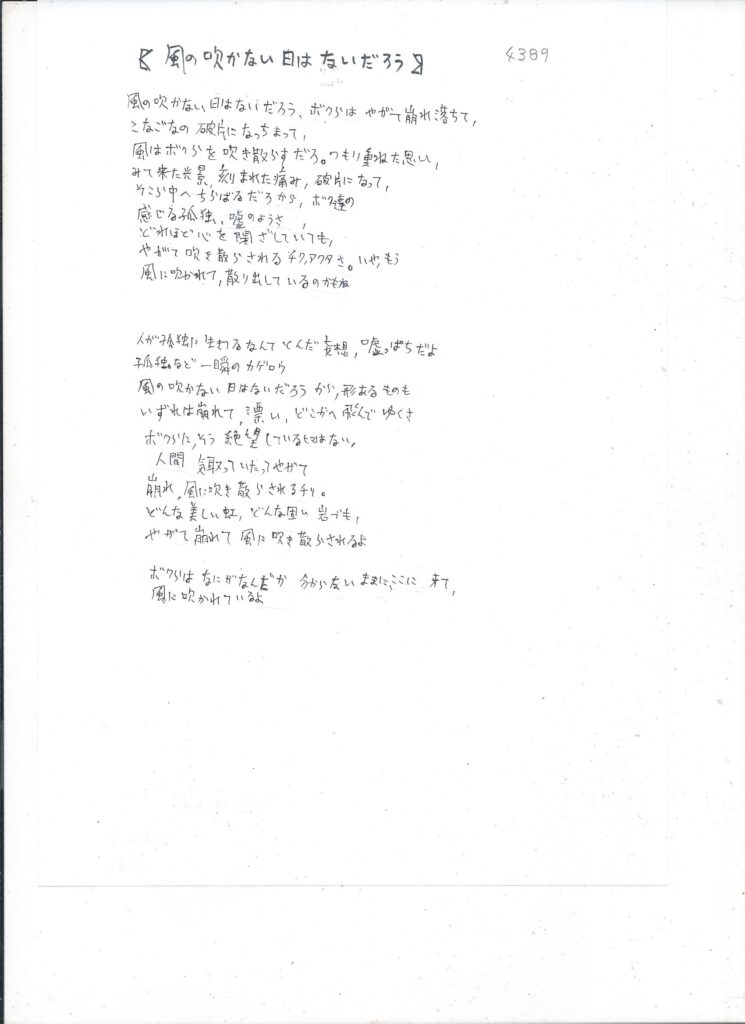 【風の吹かない日はないだろう】 4389
風の吹かない日はないだろう、ボクらは やがて崩れ落ちて、
こなごなの 破片になっちまって、
風はボクらを吹き散らすだろ。つもり重ねた思い、
みて来た光景、刻まれた痛み、破片になって、
そこら中へちらばるだろから、ボク達の
感じる孤独、嘘のようさ、
どれほど心を閉ざしていても、
やがて吹き散らされるチリ、アクタさ。いや、もう
風に吹かれて、散り出しているのかもね
人が孤独に生まれるなんてとんだ妄想、嘘っぱちだよ
孤独など一瞬のカゲロウ
風の吹かない日はないだろうから、形あるものも
いずれは崩れて、漂い、どこかへ飛んでゆくさ
ボクらに、そう絶望しているヒマはない、
人間 気取っていたってやがて
崩れ、風に吹き散らされるチリ。
どんな美しい虹、どんな固い岩でも、
やがて崩れて風に吹き散らされるよ
ボクらは なにがなんだか 分からないままに、ここに 来て、
風に吹かれているよ